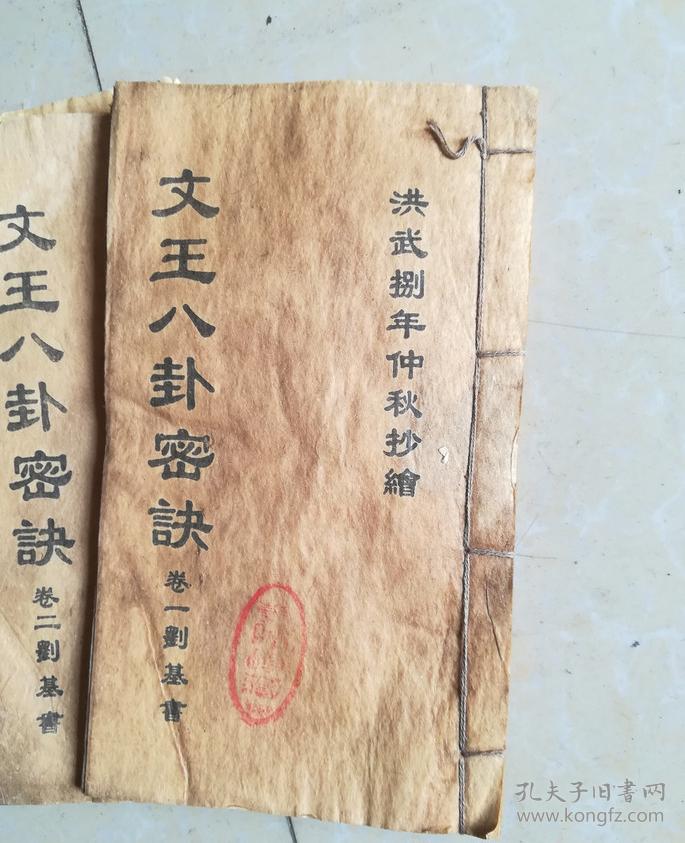 洪武捌年仲秋抄繪
文王八卦密訣
卷一劉基書
文王八卦密訣
卷二劉基書
孔夫子旧書网
www.kongfz.com